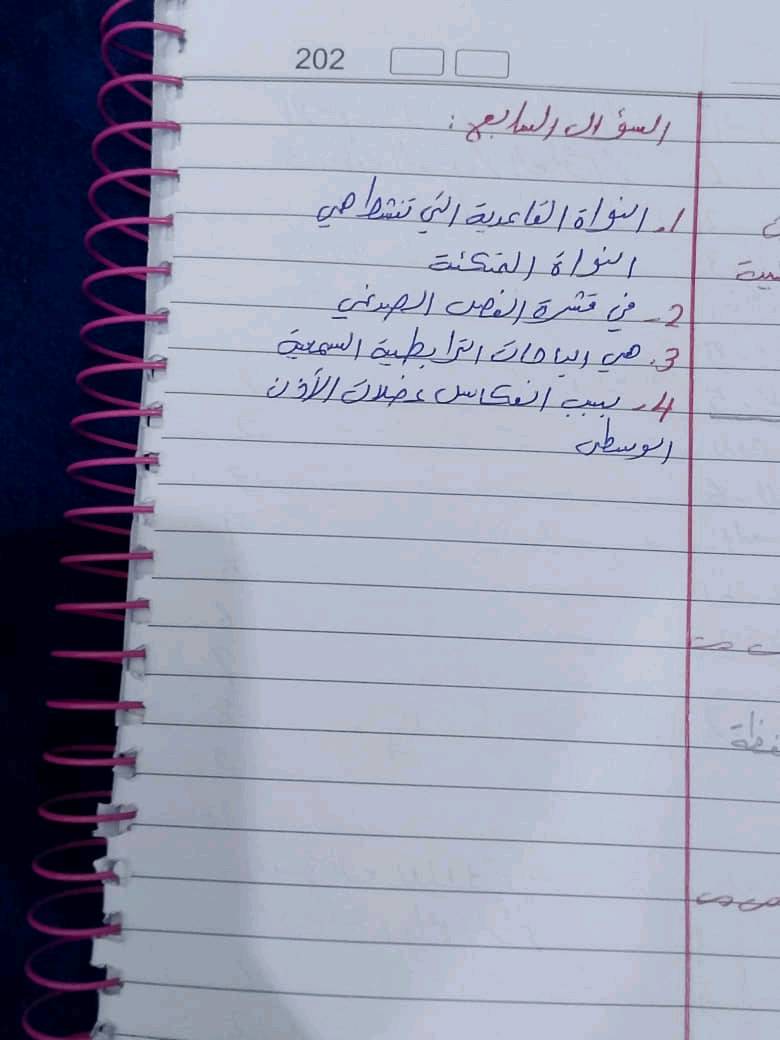 202
السؤال السابع:
1. النواة القاعدية التي تنشط هي
النواة المتكئة
2- في قشرة الفص الصدغي
3. هي الباحات الترابطية السمعية
4- بسبب انعكاس عضلات الأذن
الوسطى